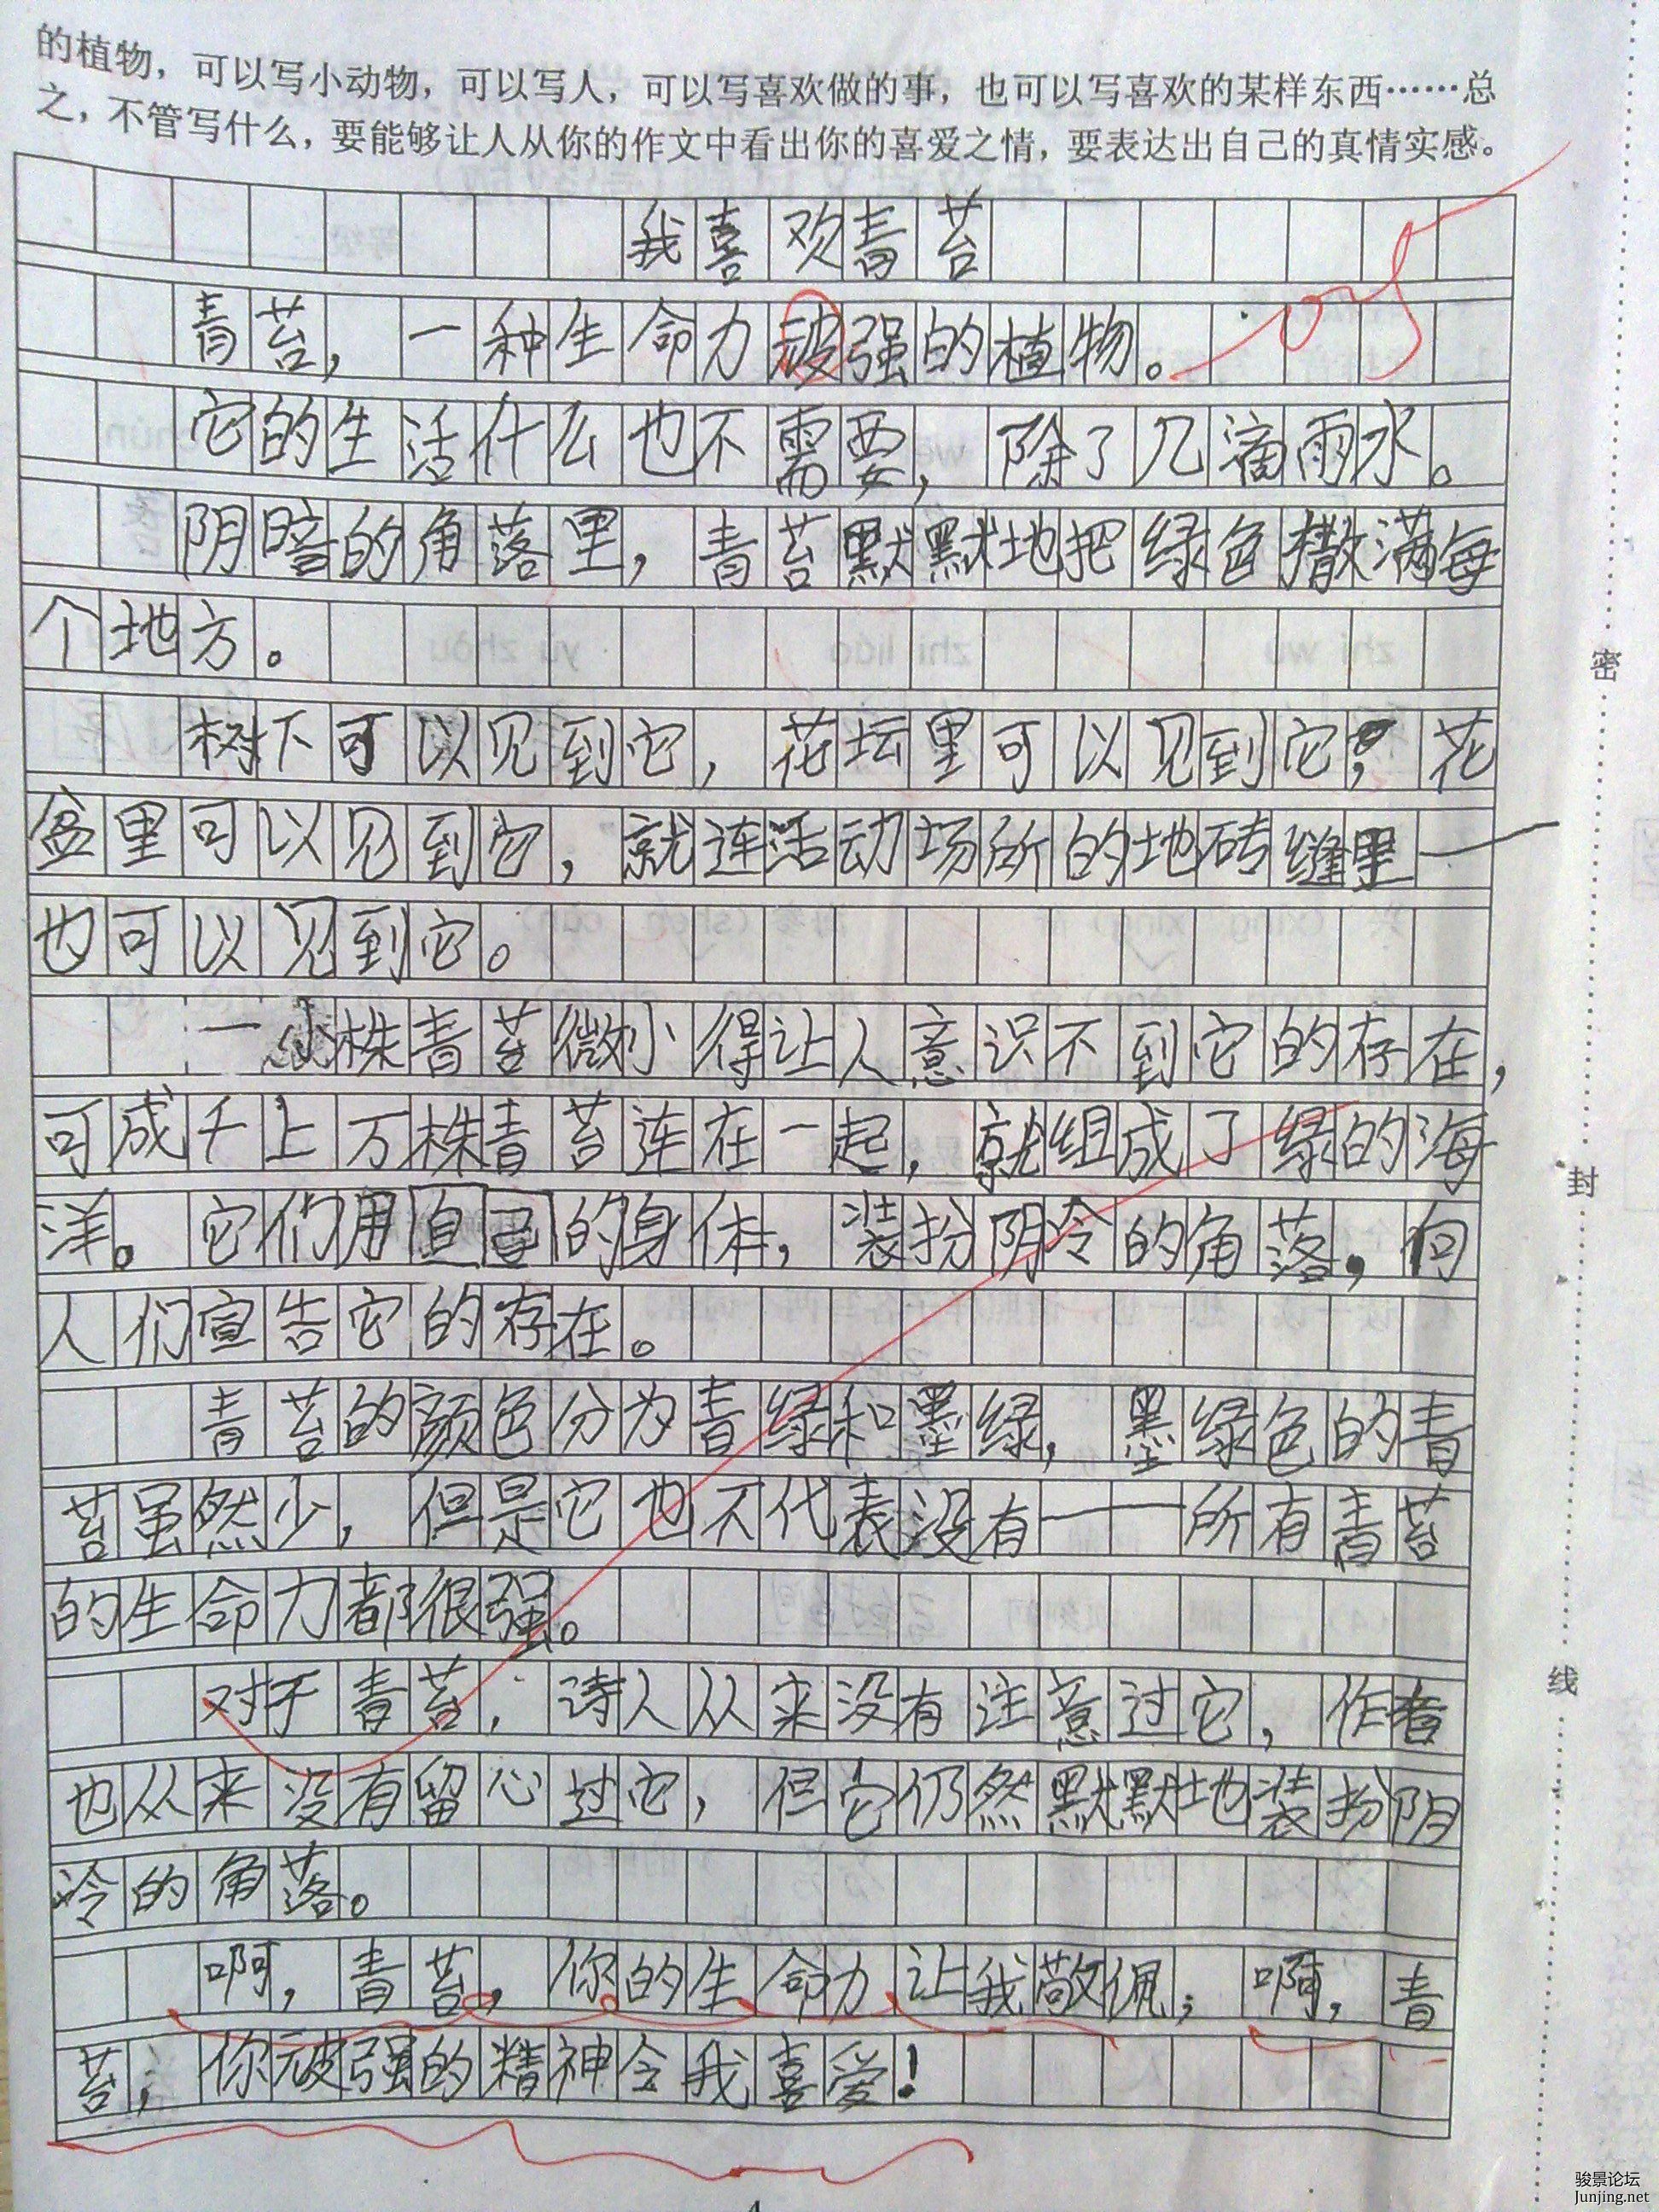 的植物，可以写小动物，可以写人，可以写喜欢做的事，也可以写喜欢的某样东西……总
之，不管写什么，要能够让人从你的作文中看出你的喜爱之情，要表达出自己的真情实感。
我喜欢青苔
青苔，一种生命力强的植物。
它的生活什么也不需要，除了几滴雨水。
阴暗的角落里，青苔默默地把绿色撒满每
个地方。
树下可以见到它，花坛里可以见到它；花
盆里可以见到它，就连活动场所的地砖缝里—
也可以见到它。
一小株青苔微小得让人意识不到它的存在，
可成千上万株青苔连在一起，就组成了绿的海
洋。它们用自己的身体，装扮阴冷的角落，向
人们宣告它的存在。
青苔的颜色分为青绿和墨绿，墨绿色的青
苔虽然少，但是它也不代表没有——所有青苔
的生命力都很强。
对于青苔，诗人从来没有注意过它，作者
也从来没有留心过它，但它仍然默默地装扮阴
冷的角落。
啊，青苔，你的生命力让我敬佩；啊，青
苔，你强的精神令我喜爱！
密
封
线
骏景论坛
Junjing.net